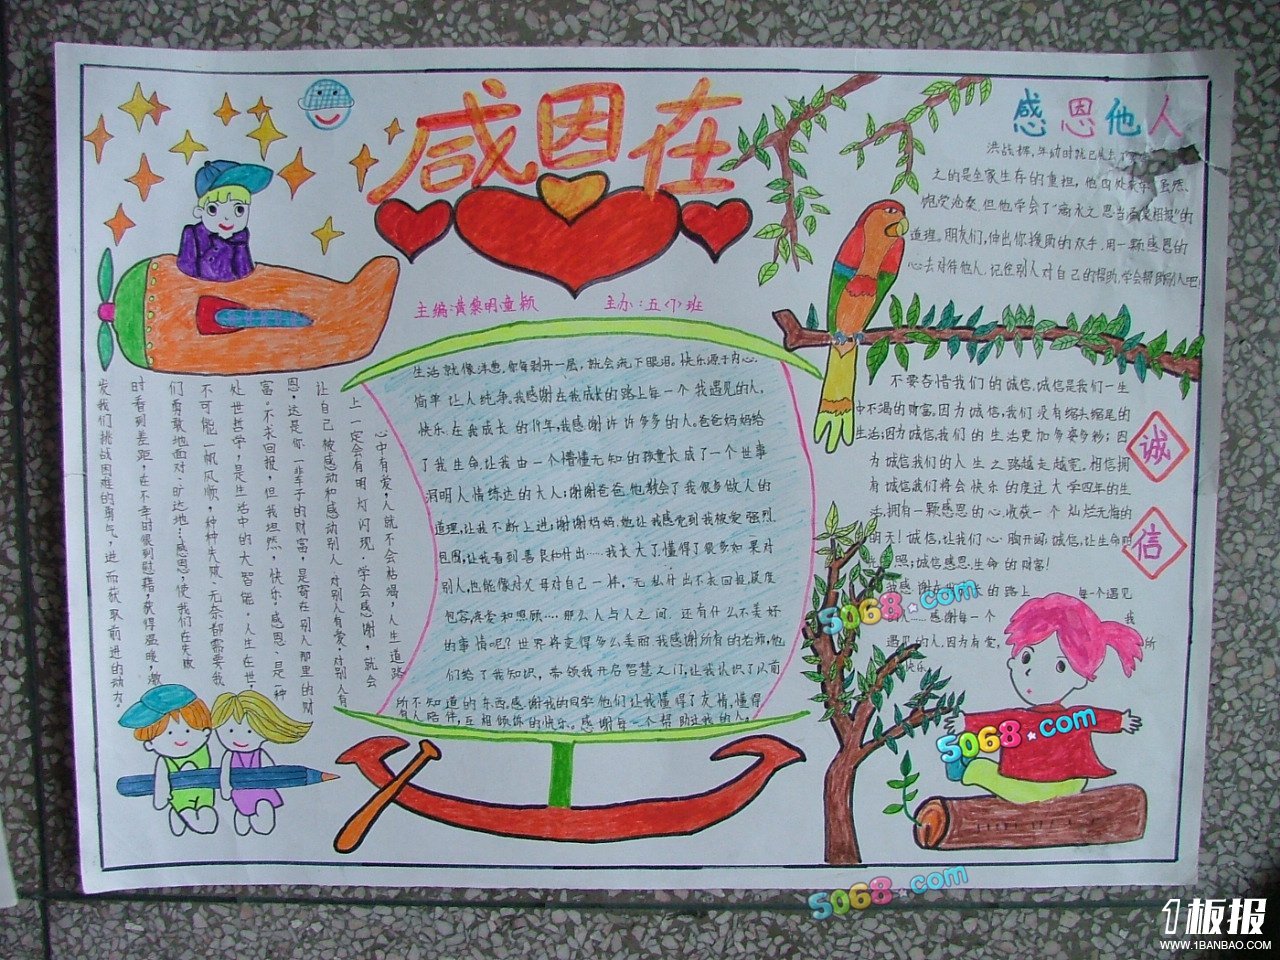 感恩在
主编:黄黎明童颖 主办:五<1>班
心中有爱,人就不会枯竭,人生道路
上一定会有明灯闪现,学会感谢,就会
让自己被感动和感动别人,对别人有爱,对别人有
恩,这是你一辈子的财富,是寄在别人那里的财
富。不求回报,但我坦然,快乐。感恩、是一种
处世哲学,是生活中的大智能。人生在世
不可能一帆风顺,种种失败、无奈都需要我
们勇敢地面对、旷达地……感恩,使我们在失败
时看到差距,在不幸时得到慰藉,获得温暖,激
发我们挑战困难的勇气,进而获取前进的动力。
生活就像洋葱,你每剥开一层,就会流下眼泪。快乐源于内心.
简单让人纯净。我感谢在我成长的路上每一个我遇见的人,
快乐.在我成长的11年,我感谢许许多多的人。爸爸妈妈给
了我生命,让我由一个懵懂无知的孩童长成了一个世事
洞明人情练达的大人;谢谢爸爸,他教会了我很多做人的
道理,让我不断上进;谢谢妈妈,她让我感觉到我被爱强烈
包围,让我看到善良和付出……我长大了懂得了很多如果对
别人,也能像对父母对自己一样,无私付出不求回报,
包容,疼爱和照顾……那么人与人之间,还有什么不美好
的事情呢?世界将变得多么美丽我感谢所有的老师,他
们给了我知识,带领我开启智慧之门,让我认识了以前
所不知道的东西,感谢我的同学他们让我懂得了友情,懂得
有人陪伴,互相倾诉的快乐。感谢每一个帮助过我的人。
感恩他人
洪战辉,年幼时就已
之的是全家生存的重担,他四处
饱受沧桑,但他学会了“滴水之恩当涌泉相报”的
道理。朋友们,伸出你援助的双手,用一颗感恩的
心去对待他人,记住别人对自己的帮助,学会帮助别人吧
不要吝惜我们的诚信,诚信是我们一生
中不渴的财富,因为诚信,我们没有缩头缩尾的
生活;因为诚信我们的生活更加多姿多彩;因
为诚信我们的人生之路越走越宽。相信拥
有诚信我们将会快乐的度过大学四年的生
活,拥有一颗感恩的心,收获一个灿烂无悔的
明天!诚信,让我们心胸开阔;诚信,让生命
照;诚信感恩,生命的财富!
感谢 的路上 每一个遇见
人……感谢每一个 我
遇见的人,因为有爱, 所
快乐
诚
信
5068.com
5068.com
5068.com
1板报
WWW.1BANBAO.COM